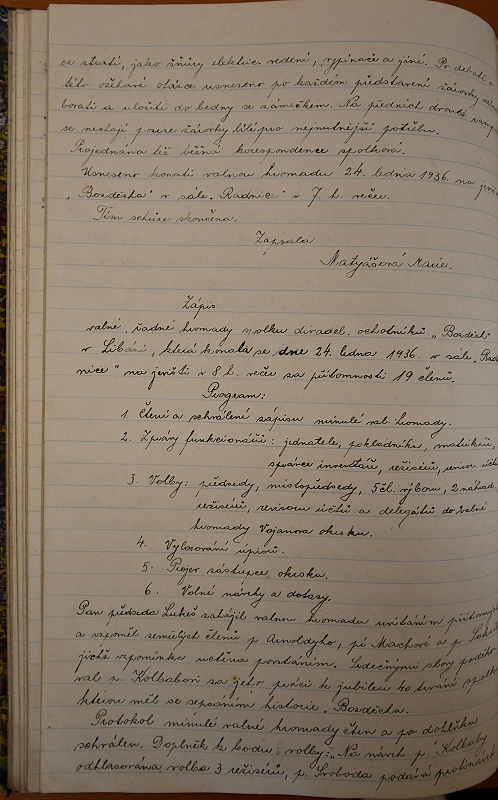 se ztratí, jako šňůry elektric. vedení, vypínače a jiné. Po debatě o
této ožehavé otázce usneseno po každém představení žárovky
borati a uložiti do bedny se zámečkem. Na předních
se nechají pouze žárovky bílé pro nejnutnější potřebu.
Projednána též běžná korespondence spolková.
Usneseno konati valnou hromadu 24. ledna 1936 na
„Bozděcha" v sále „Radnice" v 7. h. večer.
Tím schůze skončena.
Zapsala
Matyášová Marie.
Zápis
valné, řádné hromady spolku divadel. ochotníků „Bozděch"
v Libáni, která konala se dne 24. ledna 1936. v sále „Rad
nice" na jevišti v 8 h. večer za přítomnosti 19 členů.
Program:
1. Čtení a schválení zápisu minulé val. hromady.
2. Zprávy funkcionářů: jednatele, pokladníka, matrikáře,
správce inventáře, režisérů, revisorů účtů
3. Volby: předsedy, místopředsedy, 5 čl. výboru, 2 náhrad.
režisérů, revisorů účtů a delegátů do valné
hromady Vojanova okrsku.
4. Vylosování úpisů.
5. Projev zástupce okrsku.
6. Volné návrhy a dotazy.
Pan předseda Lukeš zahájil valnou hromadu uvítáním
a vzpoměl zemřelých členů p. Arnoldyho, pí Machové a p.
jichž vzpomínka uctěna povstáním. Srdečnými slovy poděko
val p. Kolbabovi za jeho práci k jubileu 40 trvání spolku
kterou měl se sepsáním historie „Bozděcha.
Protokol minulé valné hromady čten a po doplňku
schválen. Doplněk k bodu volby: „Na návrh p. Kolbaby
odhlasována volba 3 režisérů, p. Svoboda podává protinávrh